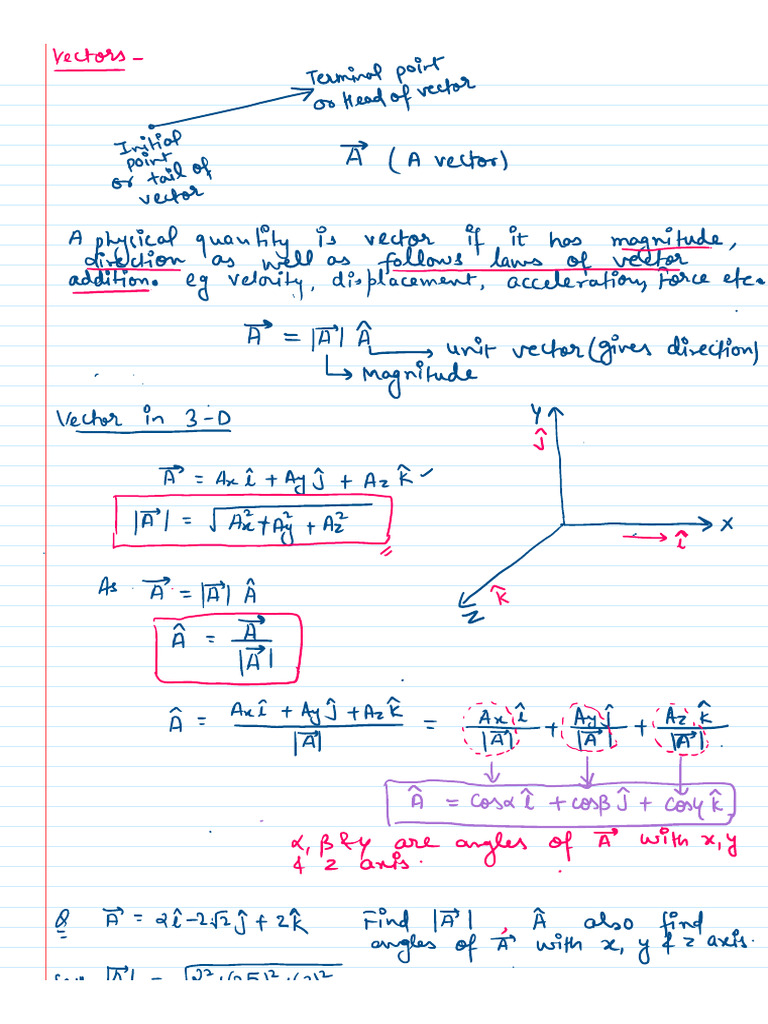 Vectors -
Terminal point
or Head of vector
Initial
point
or tail of
vector
A⃗ (A vector)
A physical quantity is vector if it has magnitude,
direction as well as follows laws of vector
addition. eg velocity, displacement, acceleration, Force etc.
A⃗ = |A⃗| Â
unit vector (gives direction)
Magnitude
Vector in 3-D
Y
ĵ
X
î
Z
k̂
A⃗ = Ax î + Ay ĵ + Az k̂ ✓
|A⃗| = √(Ax² + Ay² + Az²)
As A⃗ = |A⃗| Â
Â = A⃗ / |A⃗|
Â = (Ax î + Ay ĵ + Az k̂) / |A⃗| = Ax î / |A⃗| + Ay ĵ / |A⃗| + Az k̂ / |A⃗|
Â = cosα î + cosβ ĵ + cosγ k̂
α, β & γ are angles of A⃗ with x, y
& z axis.
Q A⃗ = 2î - 2√2 ĵ + 2k̂ Find |A⃗|, Â also find
angles of A⃗ with x, y & z axis.
|A⃗| =